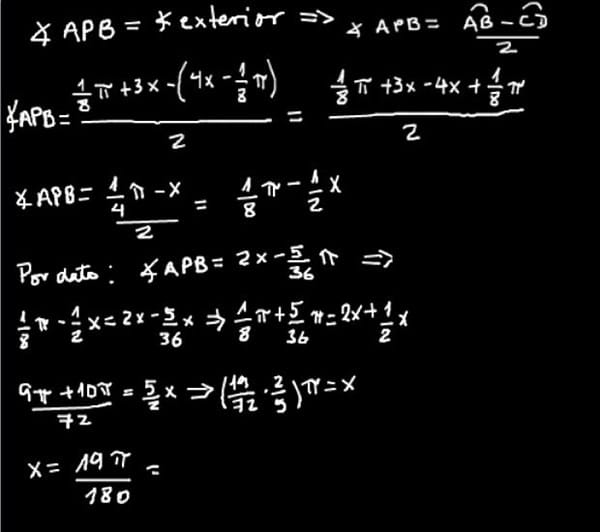 ∢ APB = ∢ exterior => ∢ APB = (A͡B - C͡D)/2
∢APB = (1/8 π + 3x - (4x - 1/8 π))/2 = (1/8 π + 3x - 4x + 1/8 π)/2
∢ APB = (1/4 π - x)/2 = 1/8 π - 1/2 x
Por dato: ∢ APB = 2x - 5/36 π =>
1/8 π - 1/2 x = 2x - 5/36 x => 1/8 π + 5/36 π = 2x + 1/2 x
(9π + 10π)/72 = 5/2 x => (19/72 · 2/5) π = x
x = 19π/180 =